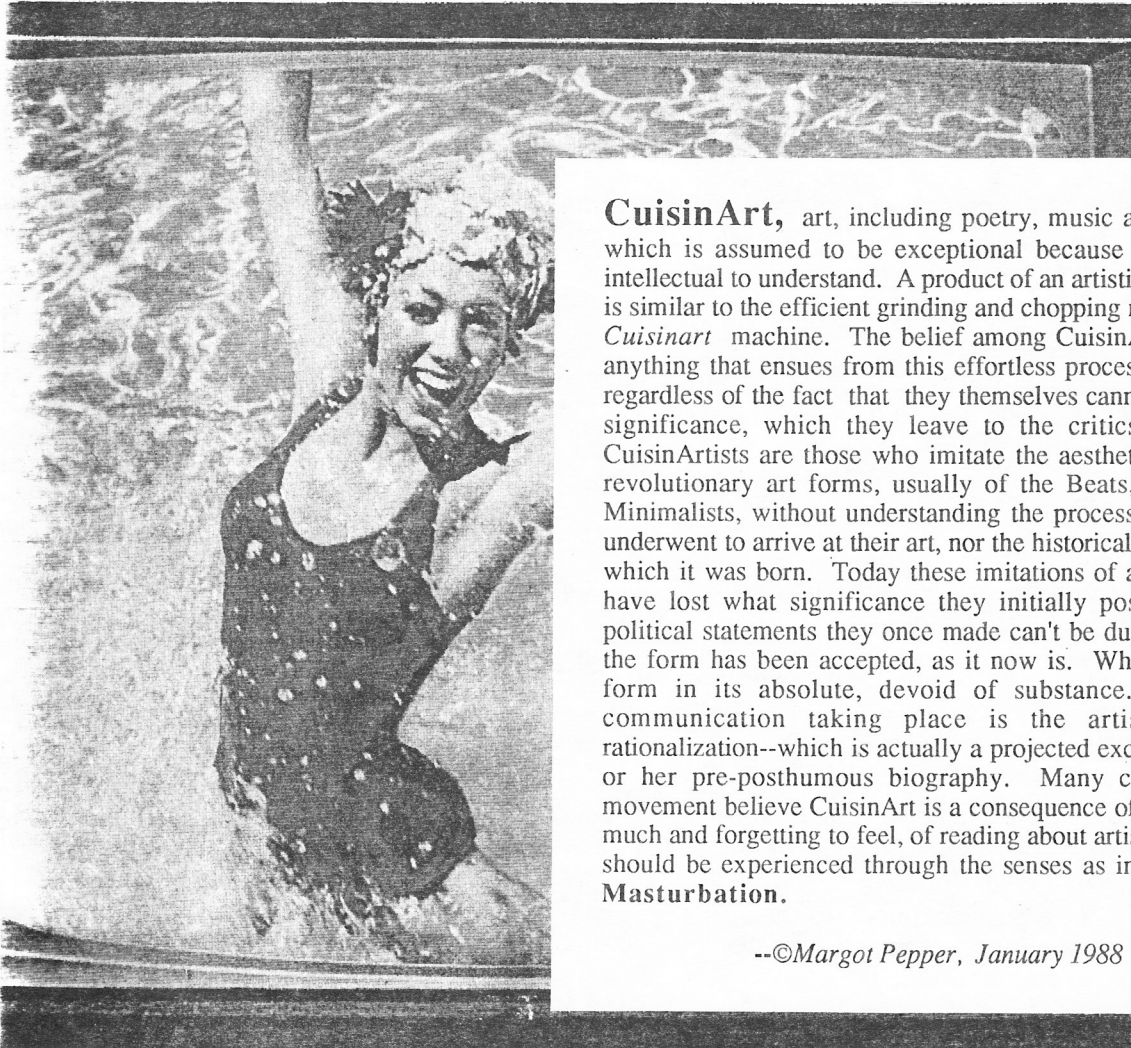 CuisinArt, art, including poetry, music a
which is assumed to be exceptional because
intellectual to understand. A product of an artisti
is similar to the efficient grinding and chopping
Cuisinart machine. The belief among Cuisin
anything that ensues from this effortless proces
regardless of the fact that they themselves can
significance, which they leave to the critics
CuisinArtists are those who imitate the aesthet
revolutionary art forms, usually of the Beats,
Minimalists, without understanding the process
underwent to arrive at their art, nor the historical
which it was born. Today these imitations of a
have lost what significance they initially pos
political statements they once made can't be du
the form has been accepted, as it now is. Wh
form in its absolute, devoid of substance.
communication taking place is the arti
rationalization--which is actually a projected exc
or her pre-posthumous biography. Many c
movement believe CuisinArt is a consequence of
much and forgetting to feel, of reading about arti
should be experienced through the senses as in
Masturbation.
--©Margot Pepper, January 1988